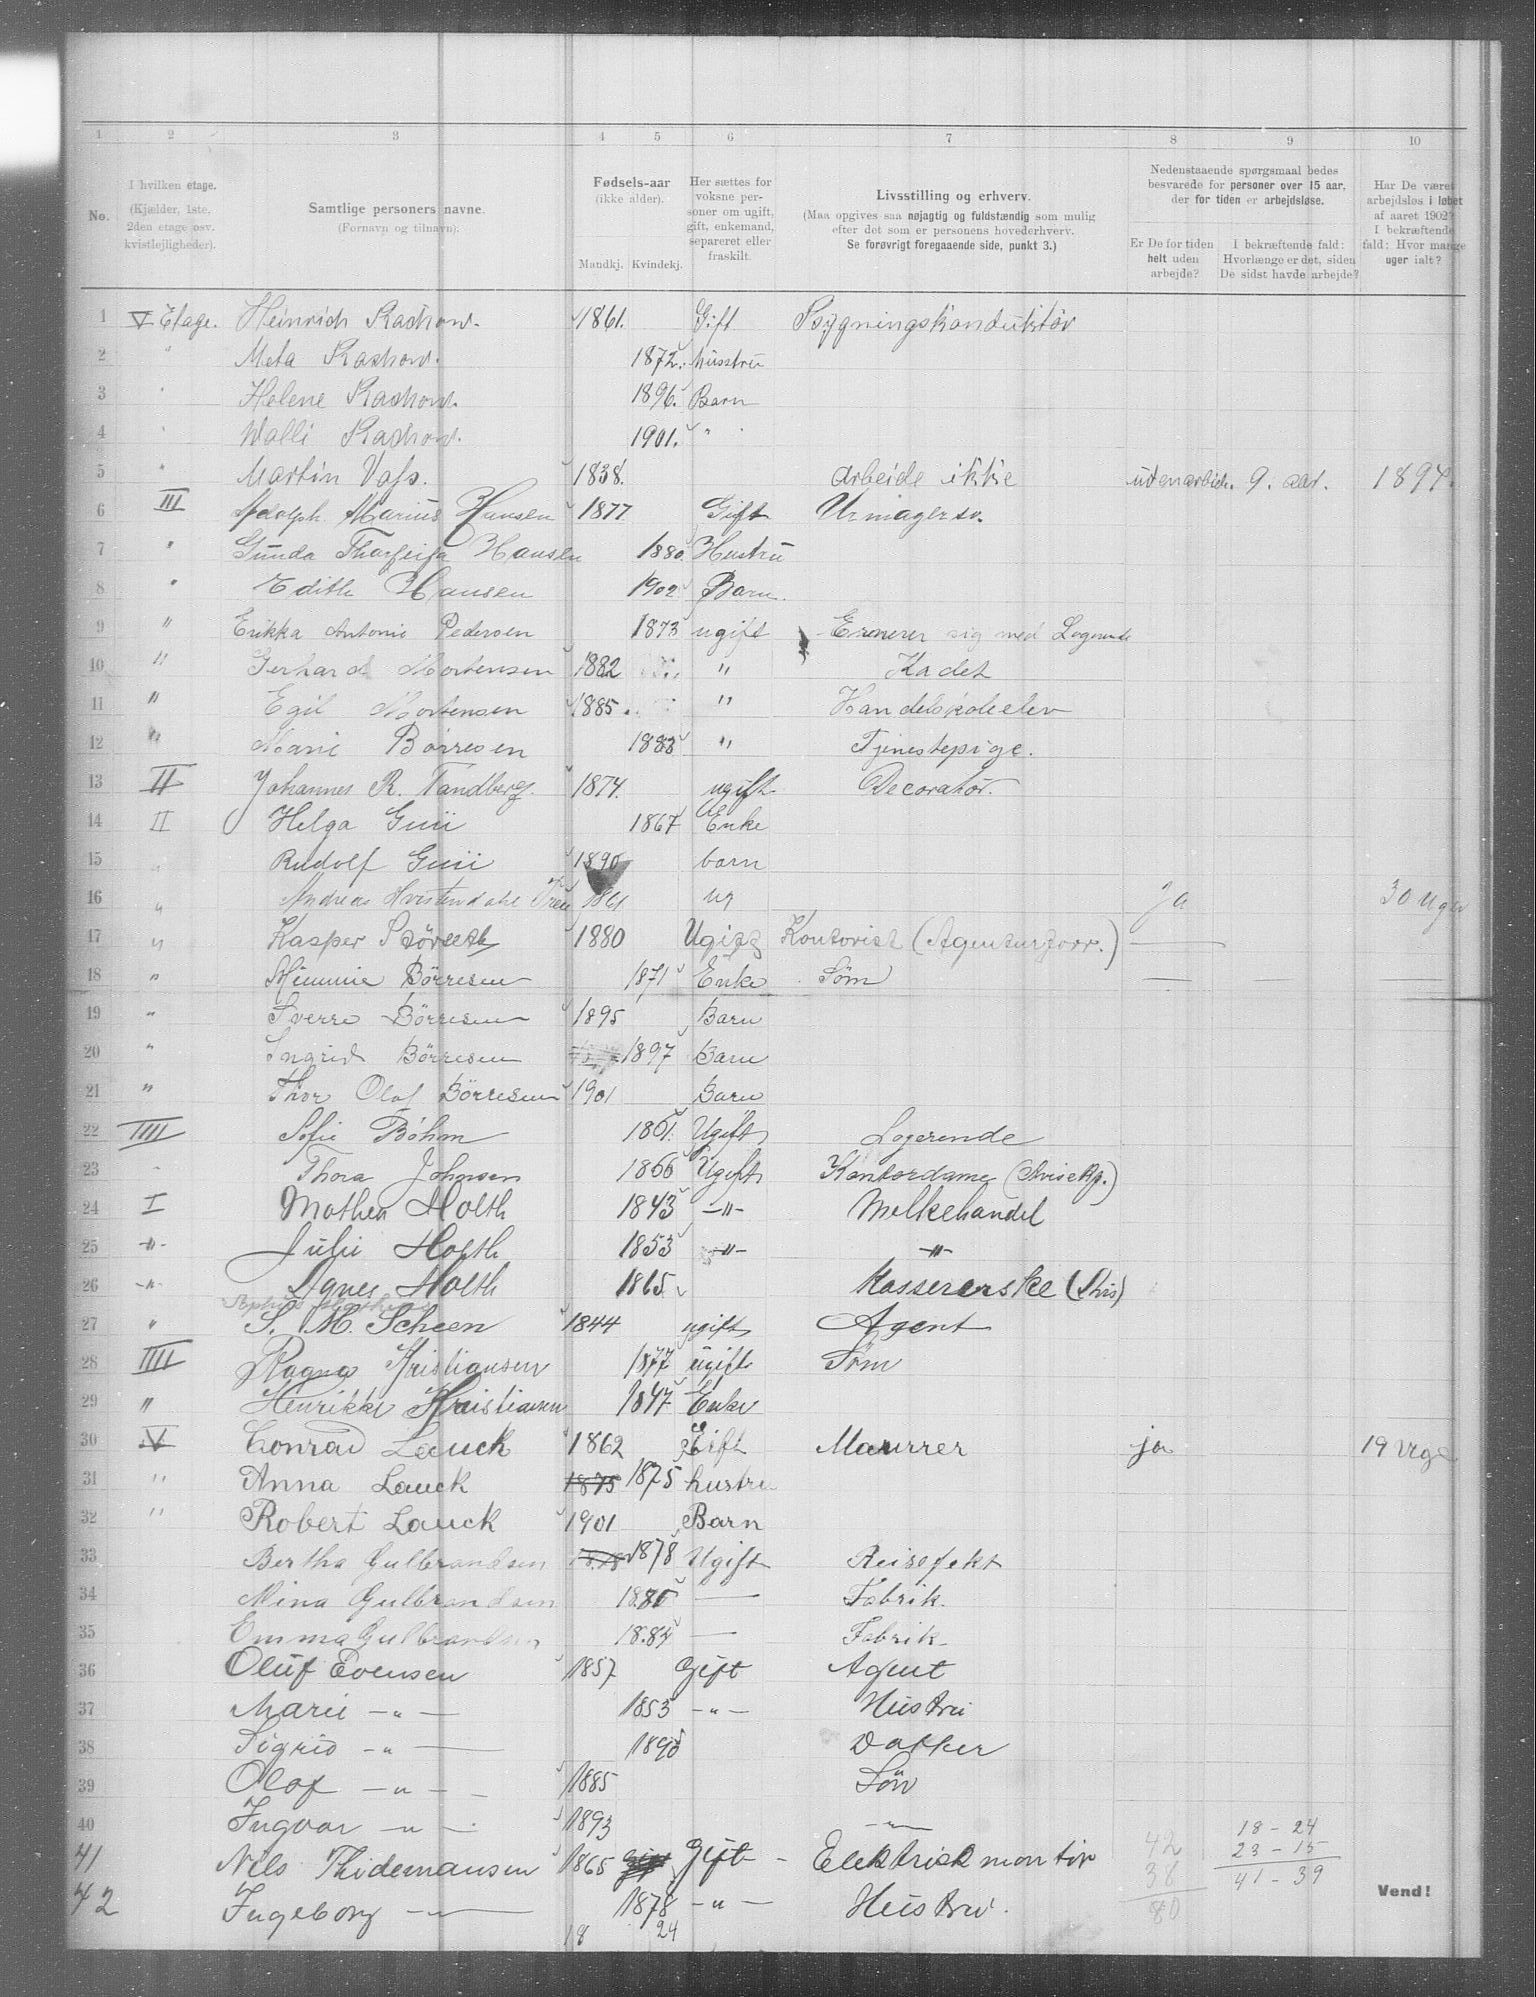 1 2 3 4 5 6 7 8 9 10
No.
I hvilken etage.
(Kjælder, 1ste, 2den etage osv. kvistlejligheder).
Samtlige personers navne.
(Fornavn og tilnavn).
Fødsels-aar
(ikke alder).
Mandkj. Kvindekj.
Her sættes for voksne personer om ugift, gift, enkemand, separeret eller fraskilt.
Livsstilling og erhverv.
(Maa opgives saa nøjagtig og fuldstændig som mulig
efter det som er personens hovederhverv.
Se forøvrigt foregaaende side, punkt 3.)
Nedenstaaende spørgsmaal bedes
besvarede for personer over 15 aar,
der for tiden er arbejdsløse.
Er De for tiden helt uden arbejde?
I bekræftende fald: Hvorlænge er det, siden De sidst havde arbejde?
Har De været arbejdsløs i løbet af aaret 1902? I bekræftende fald: Hvor mange uger ialt?
1 V Etage. Heinrich Rachow. 1861. Gift Bygningskonduktör
2 " Meta Rachow. 1872. husstru
3 " Helene Rachow. 1896. Barn
4 " Walli Rachow. 1901. "
5 " Martin Vass. 1838. arbeide ikke uden arbeid. 9. aar. 1894.
6 III Adolph Marius Hansen 1877 Gift Urmagersv.
7 " Gunda Hansen 1880. Hustru
8 " Edith Hansen 1902 Barn.
9 " Erikka Antonie Pedersen 1873 ugift Ernerer sig med Logerende
10 " Gerhard Mortensen 1882 " Kadet
11 " Egil Mortensen 1885. " Handelskoleelev
12 " Marie Börresen 1883 " Tjenestepige.
13 II Johannes R. Tandberg. 1874. ugift Decoratör.
14 II Helga 1867 Enke
15 " Rudolf 1890 barn
16 " Andreas Hvistendahl 1861 ug ja 30 uger
17 " Kasper 1880 Ugift Kontorist (Agenturforr.) —
18 " Mimmie Börresen 1871 Enke Söm —
19 " Sverre Börresen 1895 Barn
20 " Ingrid Börresen 1897 Barn
21 " Thor Olaf Börresen 1901 Barn
22 IIII Sofie Böhm 1861. Ugift Logerende
23 " Thora Johnsen 1866 Ugift Kontordame
24 I Mathea Holth 1843 —"— Melkehandel
25 —"— Julie Holth 1853 —"— —"—
26 —"— Agnes Holth 1865. Kassererske
27 " S. M. Scheen 1844 ugift Agent
28 IIII Ragna Kristiansen 1877 ugift Söm
29 " Henrikke Kristiansen 1847 Enke
30 V Conrad Lauck 1862 Gift Maurrer ja 19 Uge
31 " Anna Lauck 1875 1875 hustru
32 " Robert Lauck 1901 Barn
33 Bertha Gulbrandsen 1878 1878 Ugift Reisefekt
34 Mina Gulbrandsen 1880 — Fabrik.
35 Emma Gulbrandsen 1884 — Fabrik.
36 Oluf Evensen 1857 Gift Agent
37 Marie —"— 1853 —"— Hustru
38 Sigrid —"— 1890 Datter
39 Olaf —"— 1885 Sön
40 Ingvar —"— 1893 —"—
41 Nils Thidemansen 1865 Gift Gift Elektriskmontör
42 Ingeborg —"— 1878 —"— Hustru.
18 24
42
38
80
18 - 24
23 - 15
41 - 39
Vend!